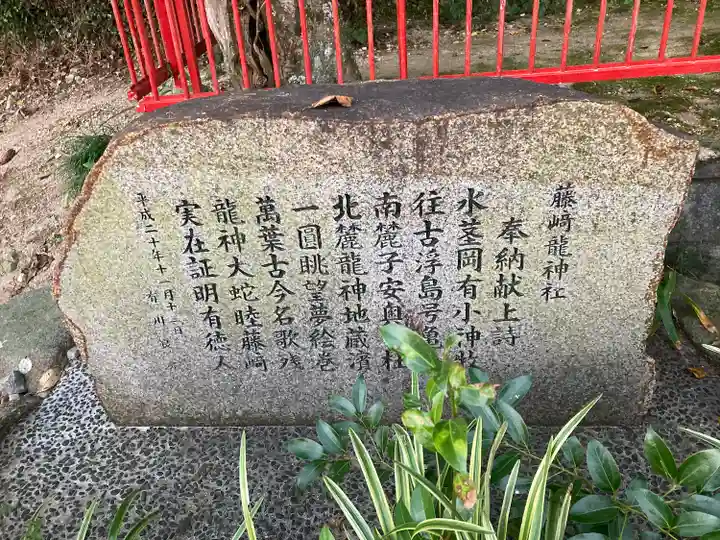 藤﨑龍神社
奉納献上詩
水茎岡有小神
往古浮島号亀
南麓子安奥
北麓龍神地蔵濱
一圓眺望夢絵巻
萬葉古今名歌残
龍神大蛇睦藤﨑
実在証明有徳人
平成二十年十一月十